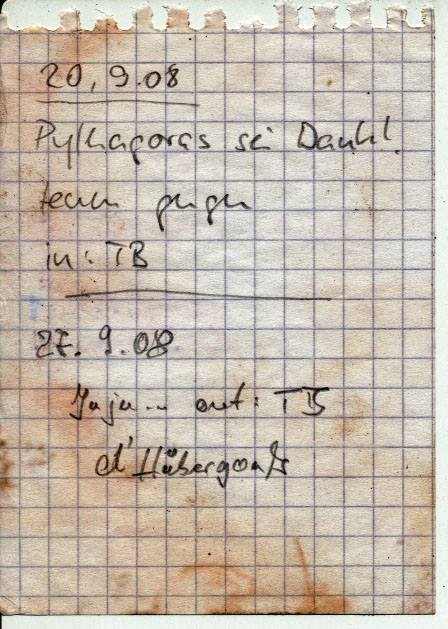 20.9.08
Pythagoras sei Dank!
team
in: TB
27.9.08
Jaja... out: TB